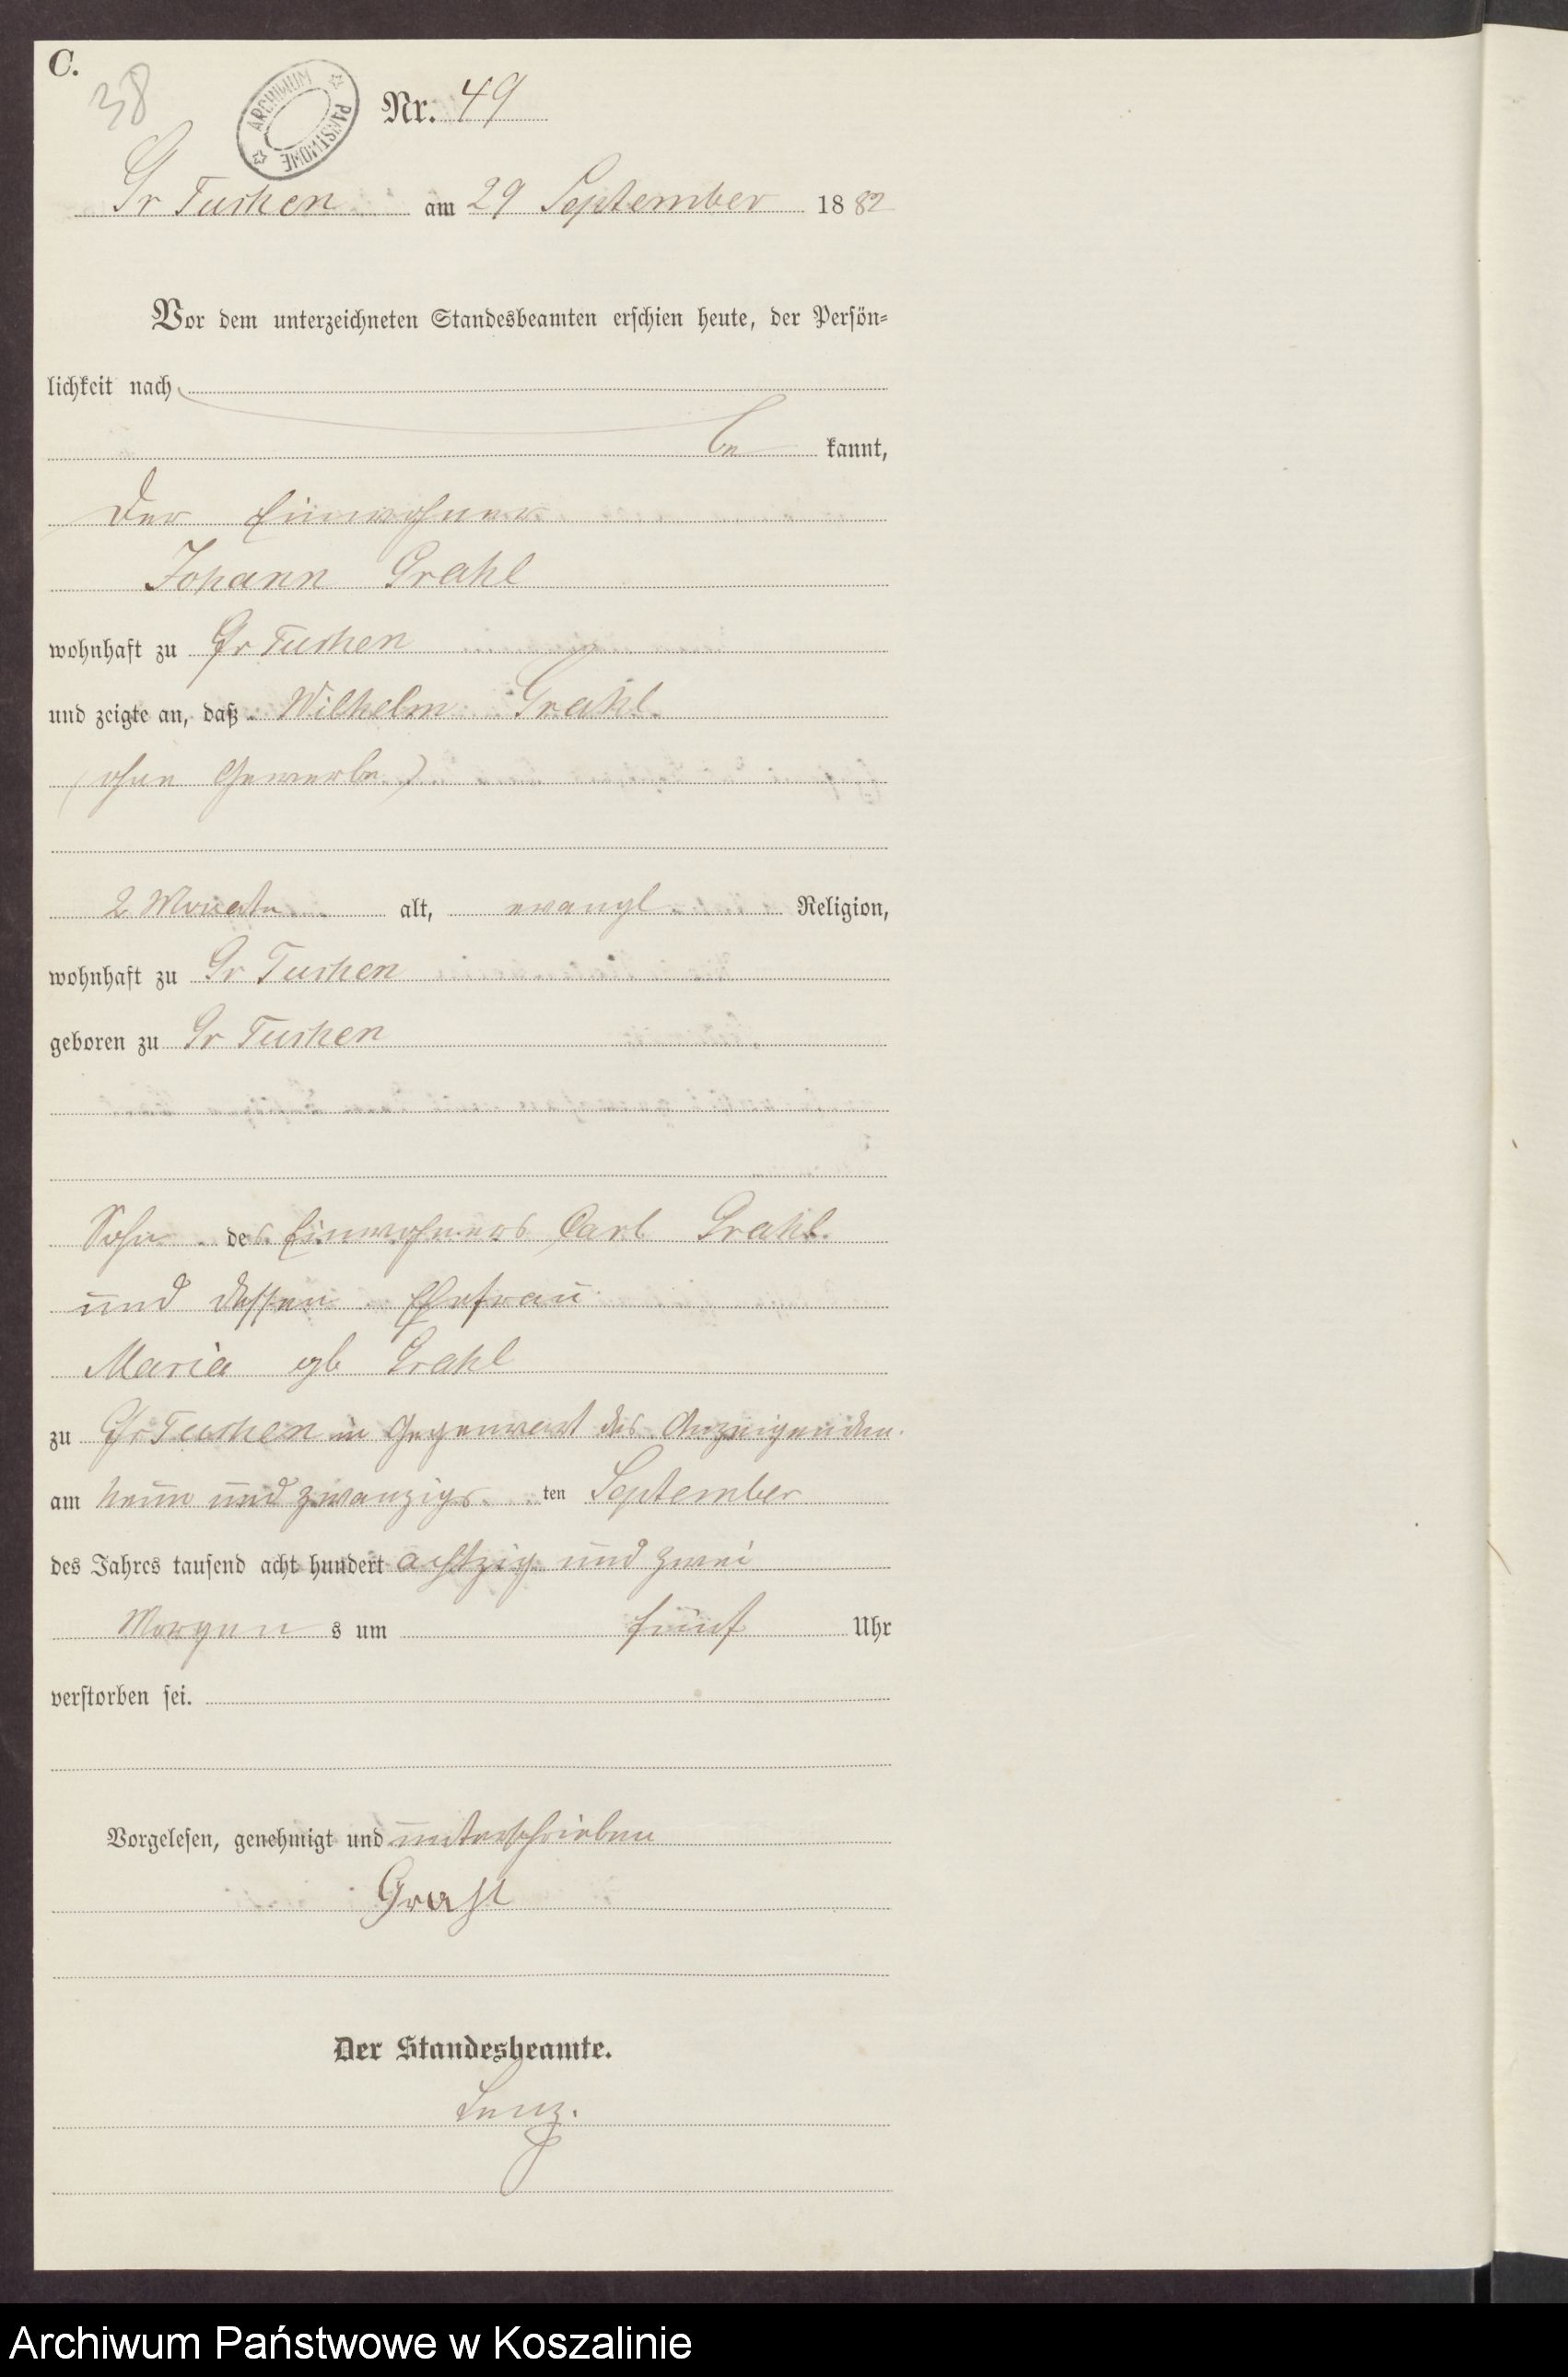 C.
38
ARCHIWUM PAŃSTWOWE
Nr. 49
Gr Tuchen am 29 September 1882
Vor dem unterzeichneten Standesbeamten erschien heute, der Persön-
lichkeit nach
be kannt,
Der Einwohner
Johann Grahl
wohnhaft zu Gr Tuchen
und zeigte an, daß Wilhelm Grahl
(ohne Gewerbe)
2 Monate alt, evangl. Religion,
wohnhaft zu Gr Tuchen
geboren zu Gr Tuchen
Sohn des Einwohners Carl Grahl
und dessen Ehefrau
Maria geb Grahl
zu Gr Tuchen in Gegenwart des Anzeigenden
am neun und zwanzigs ten September
des Jahres tausend acht hundert achtzig und zwei
Morgen s um fünf Uhr
verstorben sei.
Vorgelesen, genehmigt und unterschrieben
Grahl
Der Standesbeamte.
Lenz.
Archiwum Państwowe w Koszalinie